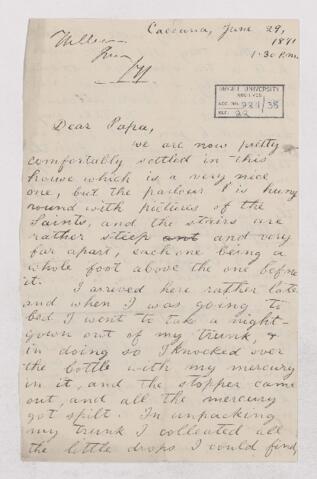 Cacouna, June 29,
1891
1.30 P.m.
McGILL UNIVERSITY
ARCHIVES
ACC. NO. 927/38
REF. 22
Dear Papa,
we are now pretty
comfortably settled in this
house which is a very nice
one, but the parlour is hung
round with pictures of the
Saints, and the stairs are
rather steep and and very
far apart, each one being a
whole foot above the one before
it.
I arrived here rather late
and when I was going to
bed I went to take a night-
gown out of my trunk, &
in doing so I knocked over
the bottle with my mercury
in it, and the stopper came
out, and all the mercury
got spilt. In unpacking
my trunk I collected all
the little drops I could find